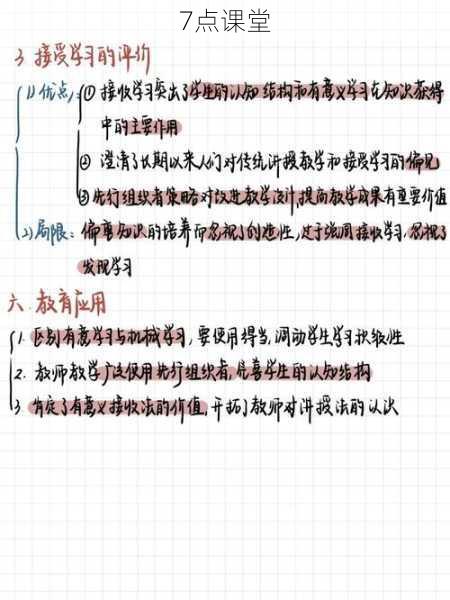 7点课堂
3 接受学习的评价
(1)优点: ①接收学习突出了学生的认知结构和有意义学习在知识获得
中的主要作用
② 澄清了长期以来人们对传统讲授教学和接受学习的偏见
③先行组织者策略对改进教学设计,提高教学成果有重要价值
(2)局限: 偏重知识的培养而忽视了创造性,过于强调接收学习,忽视了
发现学习
六. 教育应用
1. 区别有意学习与机械学习,要使用得当,调动学生学习积极性
2. 教师教学广泛使用先行组织者,完善学生的认知结构
3 肯定了有意义接收法的价值,开拓了教师对讲授法的认识